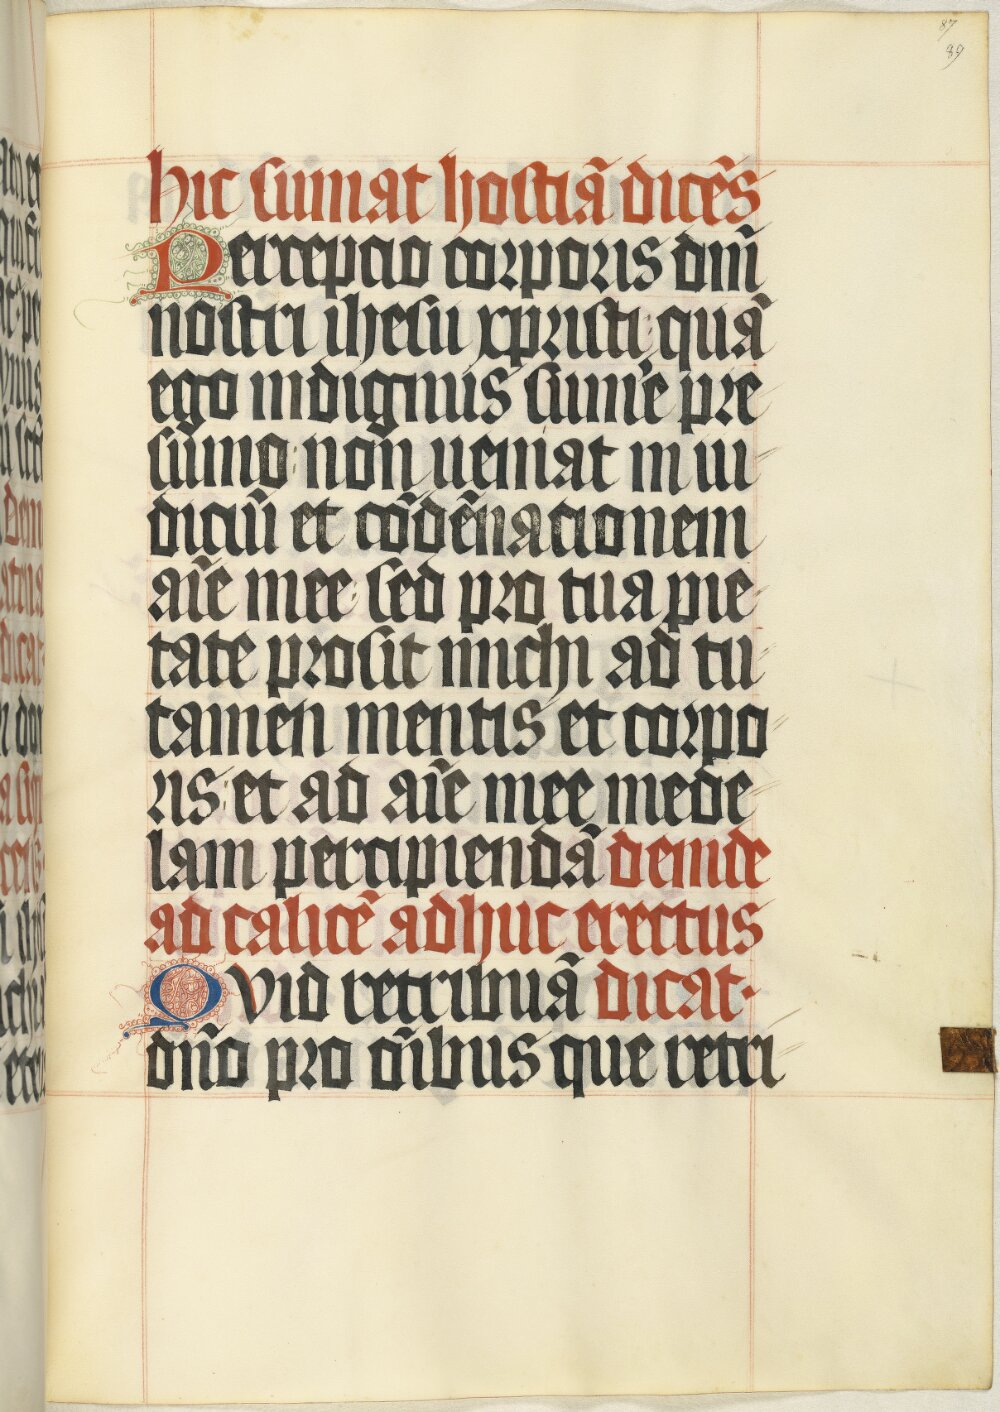 87
89
hic sumat hostiā dicēs
Percepcio corporis dn̄i
nostri ihesu xpristi quā
ego indignus sum̄e pre
sumo non ueniat in iu
diciū et cōdēnacionem
aīe mee sed pro tua pie
tate prosit michi ad tu
tamen mentis et corpo
ris et ad aīe mee mede
lam percipiendā deinde
ad calicē adhuc erectus
Qvid retribuā dicat
dn̄o pro om̄ibus que retri